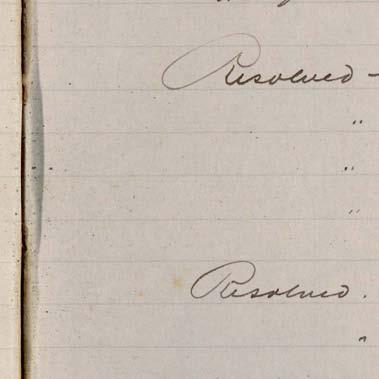 Resolved -
"
"
"
Resolved.
"